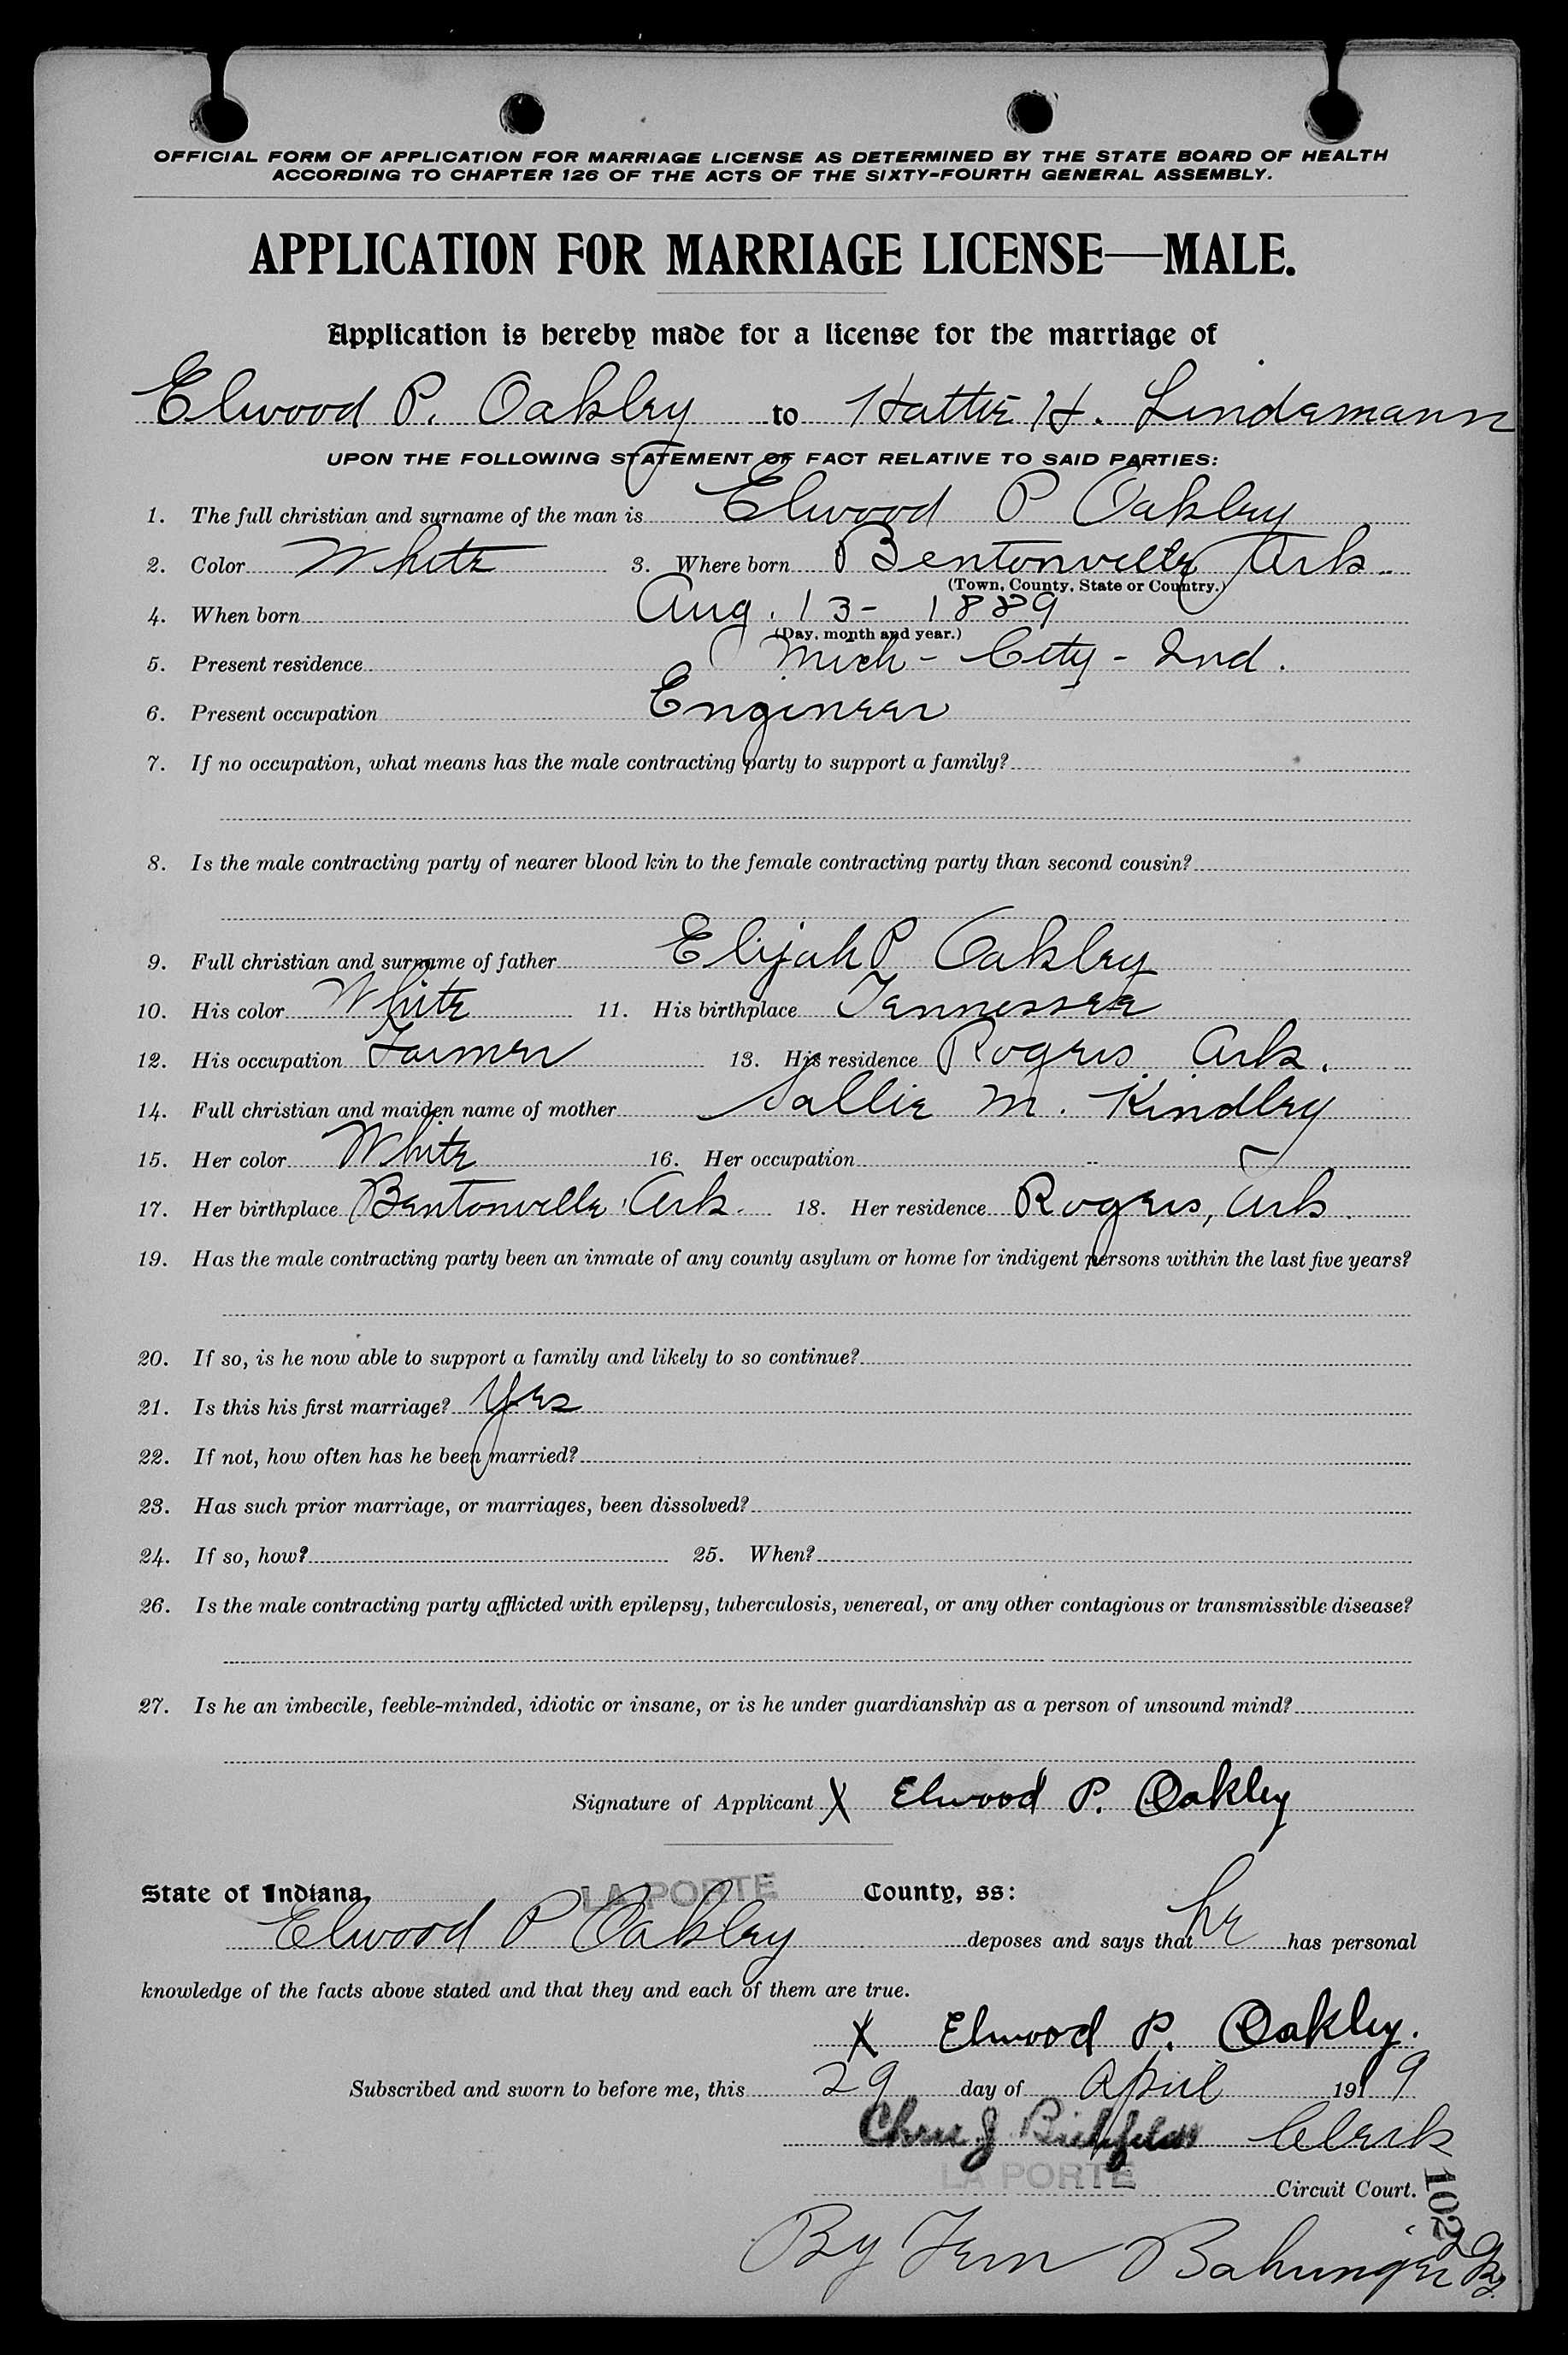 OFFICIAL FORM OF APPLICATION FOR MARRIAGE LICENSE AS DETERMINED BY THE STATE BOARD OF HEALTH
ACCORDING TO CHAPTER 126 OF THE ACTS OF THE SIXTY-FOURTH GENERAL ASSEMBLY.
APPLICATION FOR MARRIAGE LICENSE—MALE.
Application is hereby made for a license for the marriage of
Elwood P. Oakley to Hattie H. Lindemann
UPON THE FOLLOWING STATEMENT OF FACT RELATIVE TO SAID PARTIES:
1. The full christian and surname of the man is Elwood P Oakley
2. Color White 3. Where born Bentonville Ark.
(Town, County, State or Country.)
4. When born Aug. 13- 1889
(Day, month and year.)
5. Present residence Mich - City - Ind.
6. Present occupation Engineer
7. If no occupation, what means has the male contracting party to support a family?
8. Is the male contracting party of nearer blood kin to the female contracting party than second cousin?
9. Full christian and surname of father Elijah P Oakley
10. His color White 11. His birthplace Tennessee
12. His occupation Farmer 13. His residence Rogers Ark.
14. Full christian and maiden name of mother Sallie M. Kindley
15. Her color White 16. Her occupation
17. Her birthplace Bentonville Ark. 18. Her residence Rogers, Ark.
19. Has the male contracting party been an inmate of any county asylum or home for indigent persons within the last five years?
20. If so, is he now able to support a family and likely to so continue?
21. Is this his first marriage? Yes
22. If not, how often has he been married?
23. Has such prior marriage, or marriages, been dissolved?
24. If so, how? 25. When?
26. Is the male contracting party afflicted with epilepsy, tuberculosis, venereal, or any other contagious or transmissible disease?
27. Is he an imbecile, feeble-minded, idiotic or insane, or is he under guardianship as a person of unsound mind?
Signature of Applicant X Elwood P. Oakley
State of Indiana, LA PORTE County, ss:
Elwood P Oakley deposes and says that he has personal
knowledge of the facts above stated and that they and each of them are true.
X Elwood P. Oakley.
Subscribed and sworn to before me, this 29 day of April 1919
Chris J. Clerk
LA PORTE Circuit Court.
102
By Fern